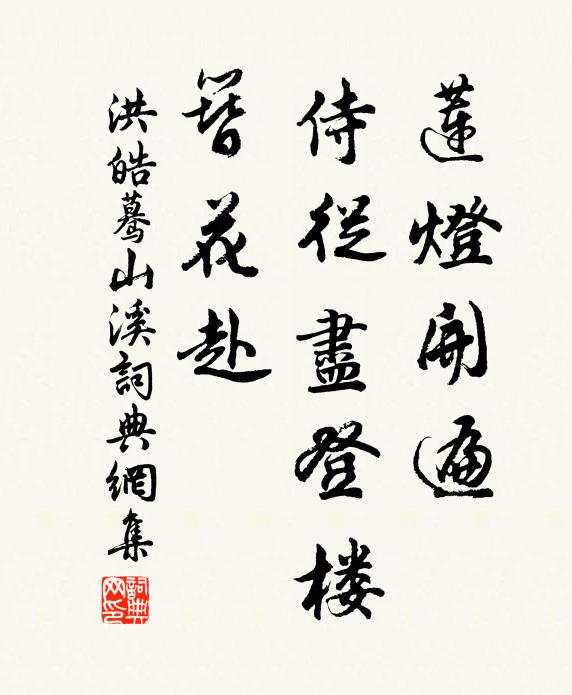 蓮燈開遍
侍從盡登樓
簪花赴
洪皓驀山溪詞典網集
詞典網印